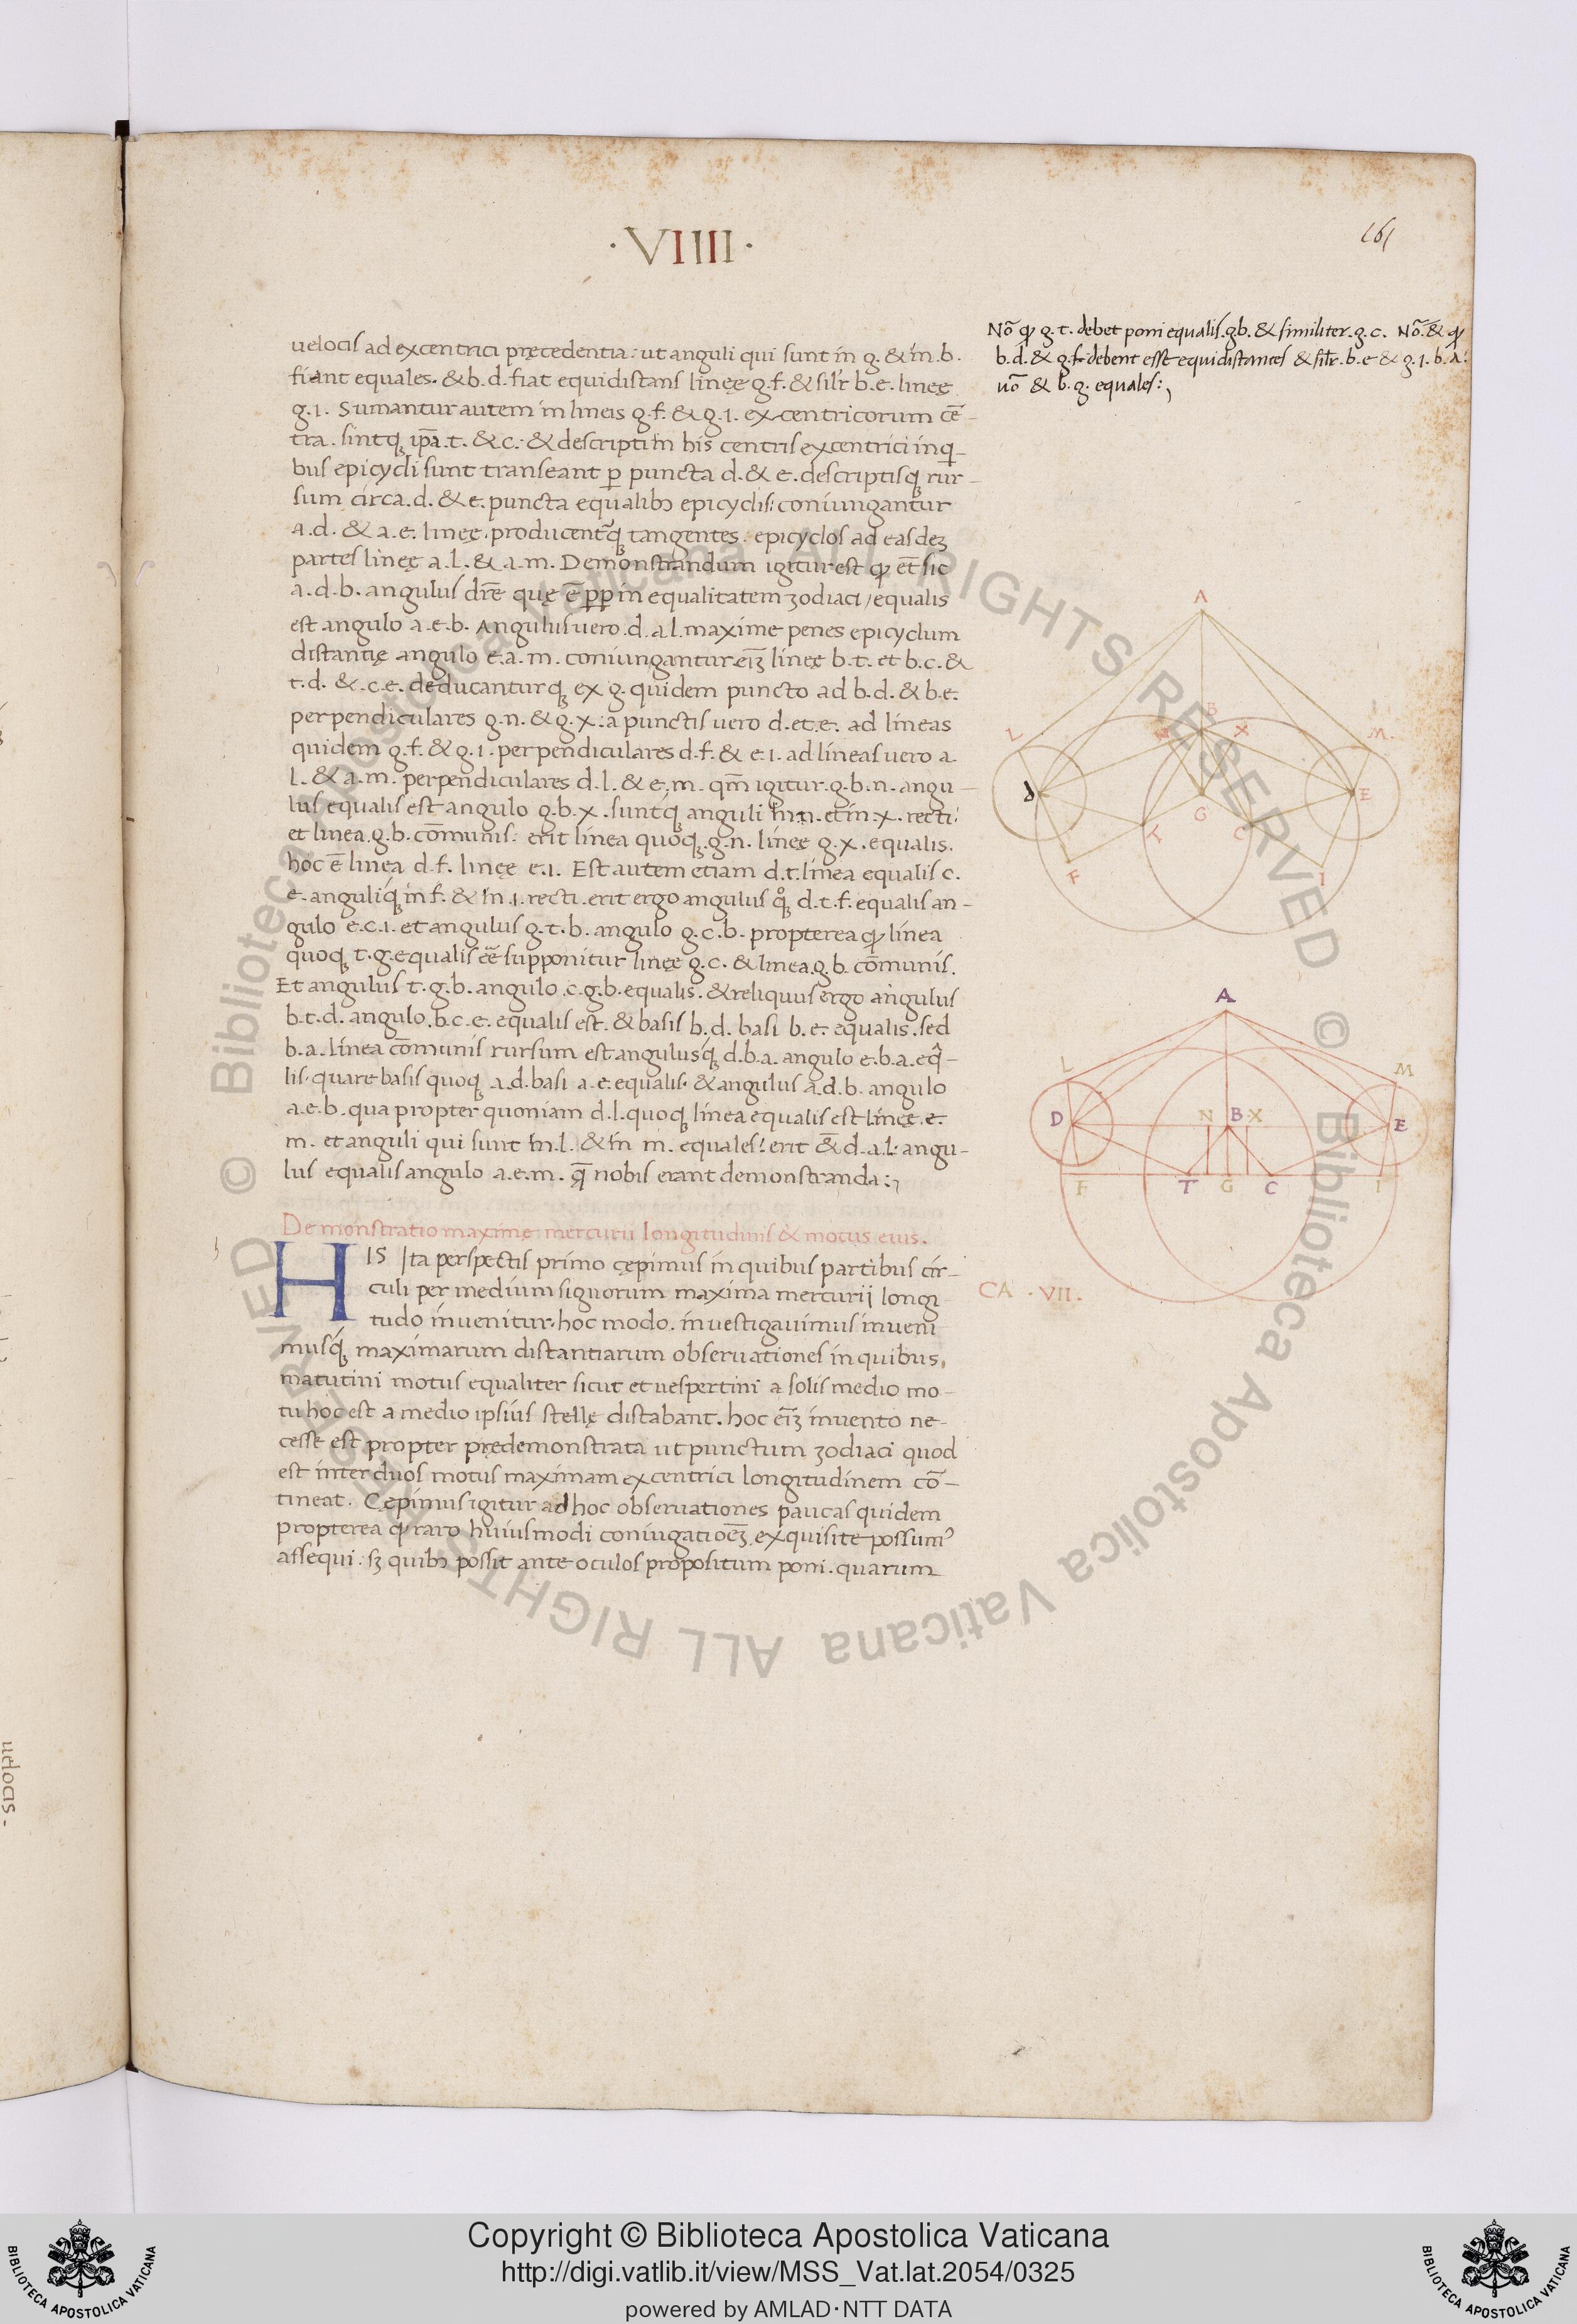 · VIIII ·
161
uelocis ad excentrici precedentia: ut anguli qui sunt in g. & in .b.
fiant equales. & b.d. fiat equidistans lineę g.f. & silr b.e. lineę
g.1. Sumantur autem in lineis g.f. & g.1. excentricorum cē-
tra. sintq ipā.t. & c: & descripti in his centris excentrici in qi-
bus epicycli sunt transeant p puncta d. & e. descriptisq rur-
sum circa .d. & e. puncta equalib epicyclis: coniungantur
A.d. & a.e. lineę. producentq tangentes. epicyclos ad easdez
partes lineę a.l. & a.m. Demonstrandum igitur est q et sic
a.d.b. angulus drē quę ē pp in equalitatem zodiaci / equalis
est angulo a.e.b. Angulus uero .d.a.l. maxime penes epicyclum
distantię angulo e.a.m. coniungantur eiz lineę b.t. et b.c. &
t.d. & .c.e. deducanturq ex g. quidem puncto ad b.d. & b.e.
perpendiculares g.n. & g.x: a punctis uero d. et .e. ad lineas
quidem g.f. & g.1. perpendiculares d.f. & e.1. ad lineas uero a.
l. & a.m. perpendiculares d.l. & e.m. qm̄ igitur .g.b.n. angu-
lus equalis est angulo g.b.x. suntq anguli in .n. et in .x. recti:
et linea .g.b. cōmunis: erit linea quoq .g.n. lineę g.x. equalis.
hoc ē linea d.f. lineę e.1. Est autem etiam d.t. linea equalis c.
e. anguliq in f. & in .1. recti. erit ergo angulus qq d.t.f. equalis an-
gulo e.c.1. et angulus g.t.b. angulo g.c.b. propterea q linea
quoq t.g. equalis eē supponitur lineę g.c. & linea .g.b. cōmunis.
Et angulus t.g.b. angulo .c.g.b. equalis. & reliquus ergo angulus
b.t.d. angulo .b.c.e. equalis est. & basis b.d. basi b.e. equalis. sed
b.a. linea cōmunis rursum est angulusq d.b.a. angulo e.b.a. eq̂-
lis. quare basis quoq a.d. basi a.e. equalis. & angulus a.d.b. angulo
a.e.b. qua propter quoniam d.l. quoq linea equalis est lineę .e.
m. et anguli qui sunt in .l. & in m. equales: erit & d.a.l: angu-
lus equalis angulo a.e.m. q̄ nobis erant demonstranda:,
Demonstratio maximę mercurii longitudinis & motus eius.
HIS Ita perspectis primo cępimus in quibus partibus cir-
culi per medium signorum maxima mercurij longi
tudo inuenitur. hoc modo. inuestigauimus inueni
musq maximarum distantiarum obseruationes in quibus.
matutini motus equaliter sicut et uespertini a solis medio mo-
tu hoc est a medio ipsius stellę distabant. hoc eiz inuento ne-
cesse est propter prędemonstrata ut punctum zodiaci quod
est inter duos motus maximam excentrici longitudinem cō-
tineat. Cępimus igitur ad hoc obseruationes paucas quidem
propterea q raro huiusmodi coniugatioēz exquisite possum9
assequi: sz quib possit ante oculos propositum poni. quarum
CA · VII.
Nō q g.t. debet poni equalis .gb. & similiter .g.c. Nō. & q
b.d. & g.f. debent esse equidistantes & silr. b.e & g.1. b.a.
uō & b.g. equales:,
A
L
B
X
M.
d
E
G
T
C
F
I
A
L
M
D
N
B
X
E
F
T
G
C
I
uelocis.
© Biblioteca Apostolica Vaticana ALL RIGHTS RESERVED © Biblioteca Apostolica Vaticana ALL RIGHTS RESERVED
Copyright © Biblioteca Apostolica Vaticana
http://digi.vatlib.it/view/MSS_Vat.lat.2054/0325
powered by AMLAD·NTT DATA
BIBLIOTECA APOSTOLICA VATICANA
BIBLIOTECA APOSTOLICA VATICANA